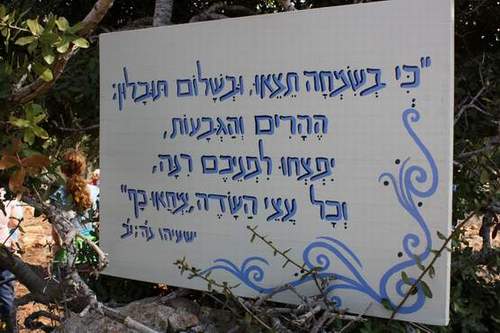 "כִּי בְשִׂמְחָה תֵצֵאוּ, וּבְשָׁלוֹם תּוּבָלוּן;
הֶהָרִים וְהַגְּבָעוֹת,
יִפְצְחוּ לִפְנֵיכֶם רִנָּה,
וְכָל עֲצֵי הַשָּׂדֶה, יִמְחֲאוּ כָף"
ישעיהו נ"ה; י"ב